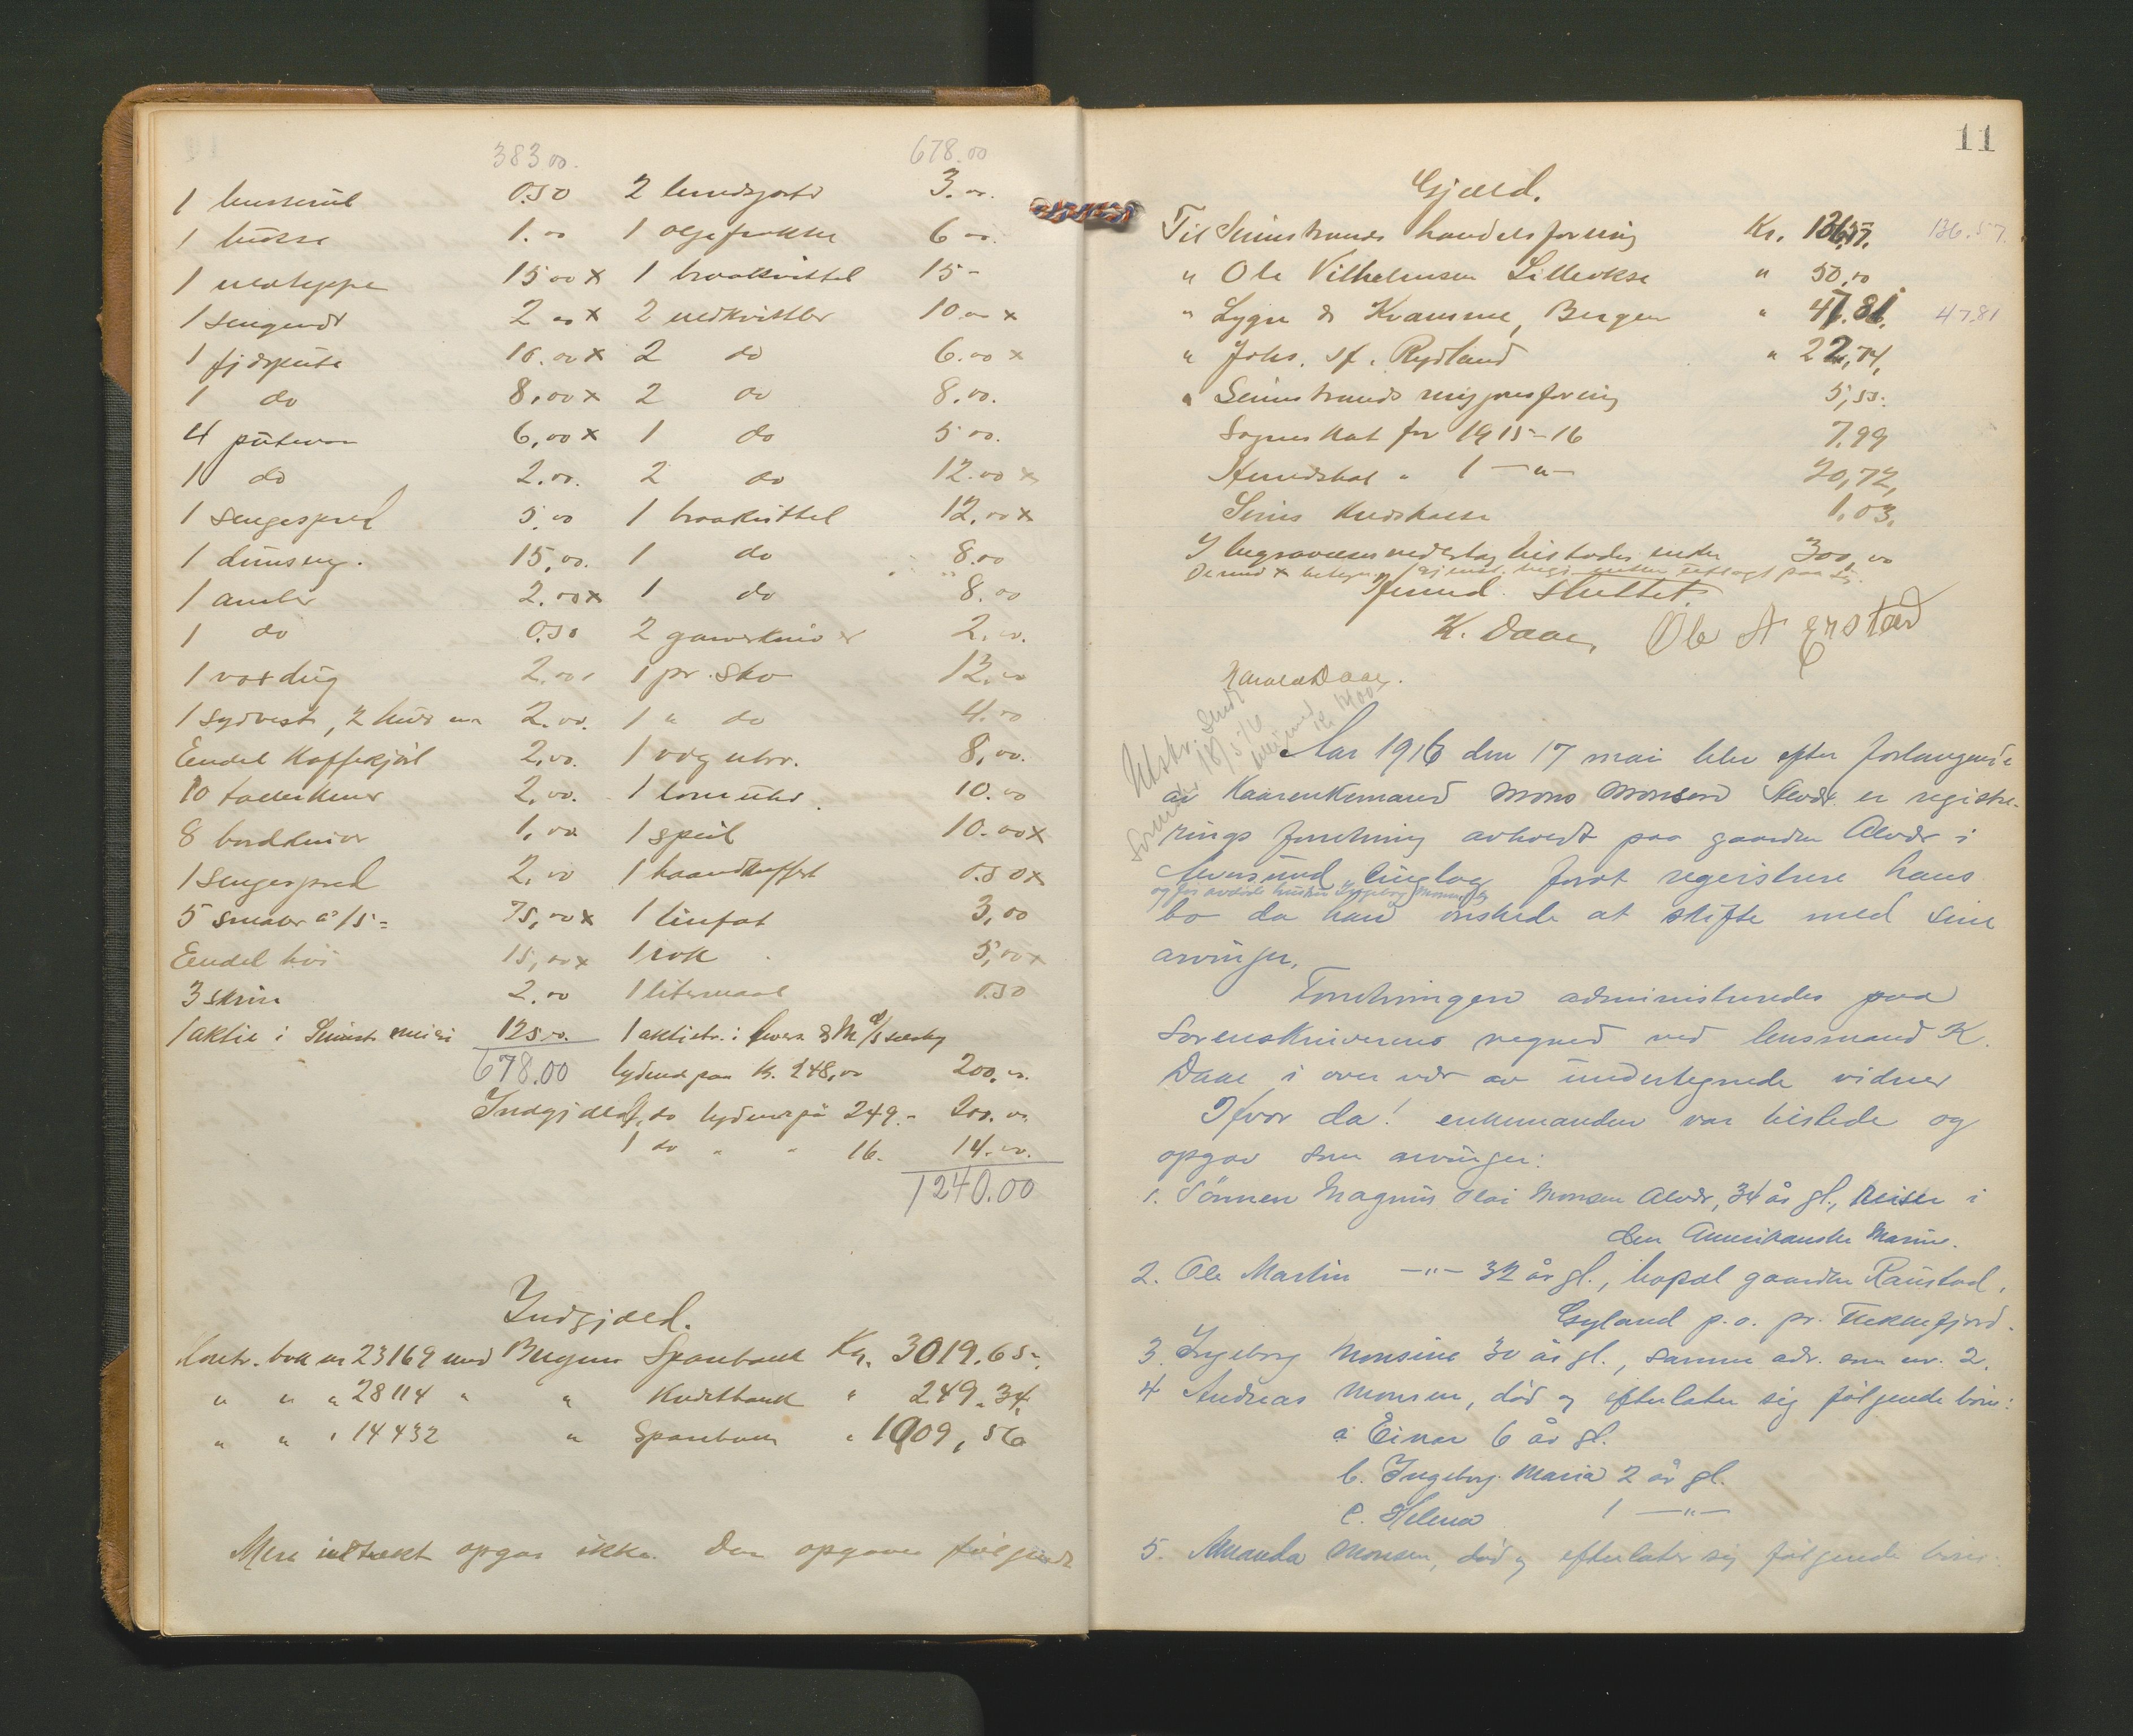 383 00.
1 0.50
1 bøsse 1.00
1 uldteppe 15 00 x
1 2 00 x
1 10.00 x
1 do 8,00 x
4 putevar 6,00 x
1 do 2.00.
1 Sengespred 5,00
1 dunseng. 15,00.
1 2.00 x
1 do 0.50
1 voxdug 2.00
1 sydvest, 2 2.00.
Endel Kaffekjøl 2,00.
10 tallerkener 2,00.
8 bordkniver 1,00
1 Sengespred 2,00
5 smaler á 15= 75,00 x
Endel høi 15,00 x
3 skrin 2.00
1 aktie i Seimst. meieri 125 00.
678.00
678.00
2 3.00.
1 oljefrakke 6 00.
1 15-
2 10 00 x
2 do 6.00 x
2 do 8.00.
1 do 5 00.
2 do 12.00 x
1 12,00 x
1 do 8.00
1 do 8.00
2 2.00.
1 pr. sko 12.00
1 " do 4.00
1 væg uhr. 8,00.
1 lomeuhr. 10.00
1 speil 10.00 x
1 haandkuffert 0.50 x
1 tinfat 3,00
1 rok 5,00 x
1 litermaal 0.50
1 aktiebr. i
lydende paa Kr. 248,00 200,00.
Indgjæld, do lydende på 249.- 200.00.
1 do " " 16. 14.00.
1240.00
Indgjæld.
Kontr. bok nr 23169 med Bergens Sparebank Kr. 3019.65.
" " " 28114 " " Kreditbank " 249.34.
" " " 14432 " Sparebank " 1009,56
Mere indtækt opgas ikke. Der opgaves følgende
11
Gjæld.
Til Seimstrands handelsforening Kr. 136,57. 136.57.
" Ole Vilhelmsen Lilleokse " 50.00
" Lygre & Kvamme, Bergen " 47.81. 47.81
" Johs. Rydland " 22,74,
" Seimstrands misjonsforening 5,50.
Sogneskat for 1915-16 7.99
Amtsskat " 1 -"- 20,72,
Seims Kredskasse 1.03.
I begravelse 300,00
De med x
Sluttet.
K. Daae, Ole A Erstad
Harald Daae.
Utskr. sendt
18/5 16
Aar 1916 den 17 mai blev efter forlangende
av Kaarenkemand Mons Monsen Alvær en registre-
rings forretning avholdt paa gaarden Alvær i
Alversund tinglag forat registrere hans
og for avdøde hustru Ingeborg
bo da han ønskede at skifte med sine
arvinger.
Forretningen administreredes paa
Sorenskriverens vegne ved lensmand K.
Daae i overvær av undertegnede vidner
Hvor da! enkemanden var tilstede og
opgav som arvinger:
1. Sønnen Magnus Olai Monsen Alvær, 34 år gl., reiser i
den Amerikanske Marine.
2. Ole Martin -"- 32 år gl., bopæl gaarden Raustad,
Gyland p.o. pr. Flekkefjord.
3. Ingeborg Monsine 30 år gl., samme adr. som nr. 2.
4 Andreas Monsen, død og efterlater sig følgende børn:
a Einar 6 år gl.
b. Ingeborg Maria 2 år gl.
c. Helena 1 -"-
5. Amanda Monsen, død og efterlater sig følgende børn